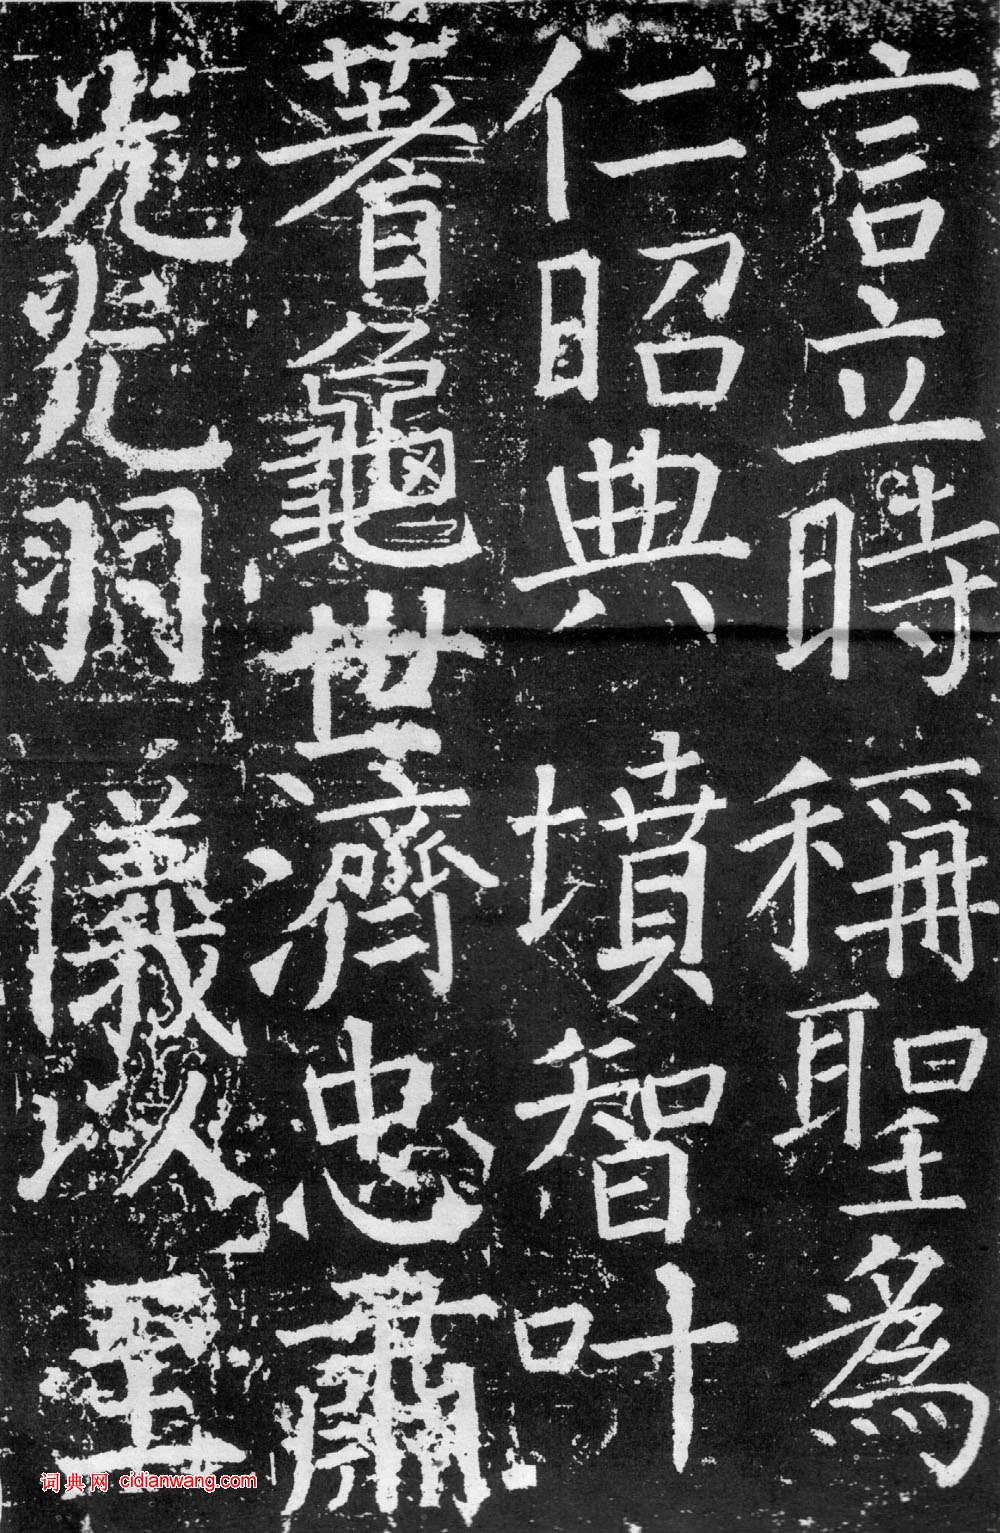 言立時稱聖為
仁昭典墳智叶
蓍龜世濟忠肅
光光羽儀以至
词典网 cidianwang.com